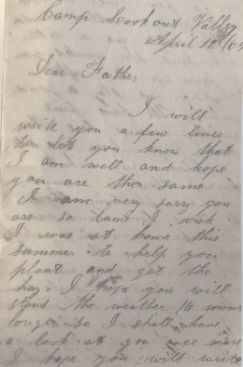 Camp Lookout Valley
April 12th/64
Dear Father
I will
write you a few lines
to let you know that
I am well and hope
you are the same
I am very sorry you
are so lame I wish
I was at home this
summer to help you
plant and get the
hay I hope you will
stand the weather 16 mons
longer so I shall have
a look at you once more
I hope you will write